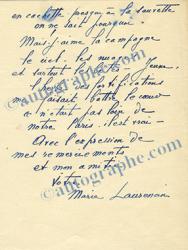 en cachette presque à la sauvette
on ne sait pourquoi.
Mais j'aime la campagne
le ciel, les nuages
et surtout
des fortifications
faisait battre le cœur
n'était pas loin de
notre Paris. c'est vrai —
Avec l'expression de
mes remerciements
et mon amitié
Votre
Marie Laurencin
© autographe.com
© autographe.com